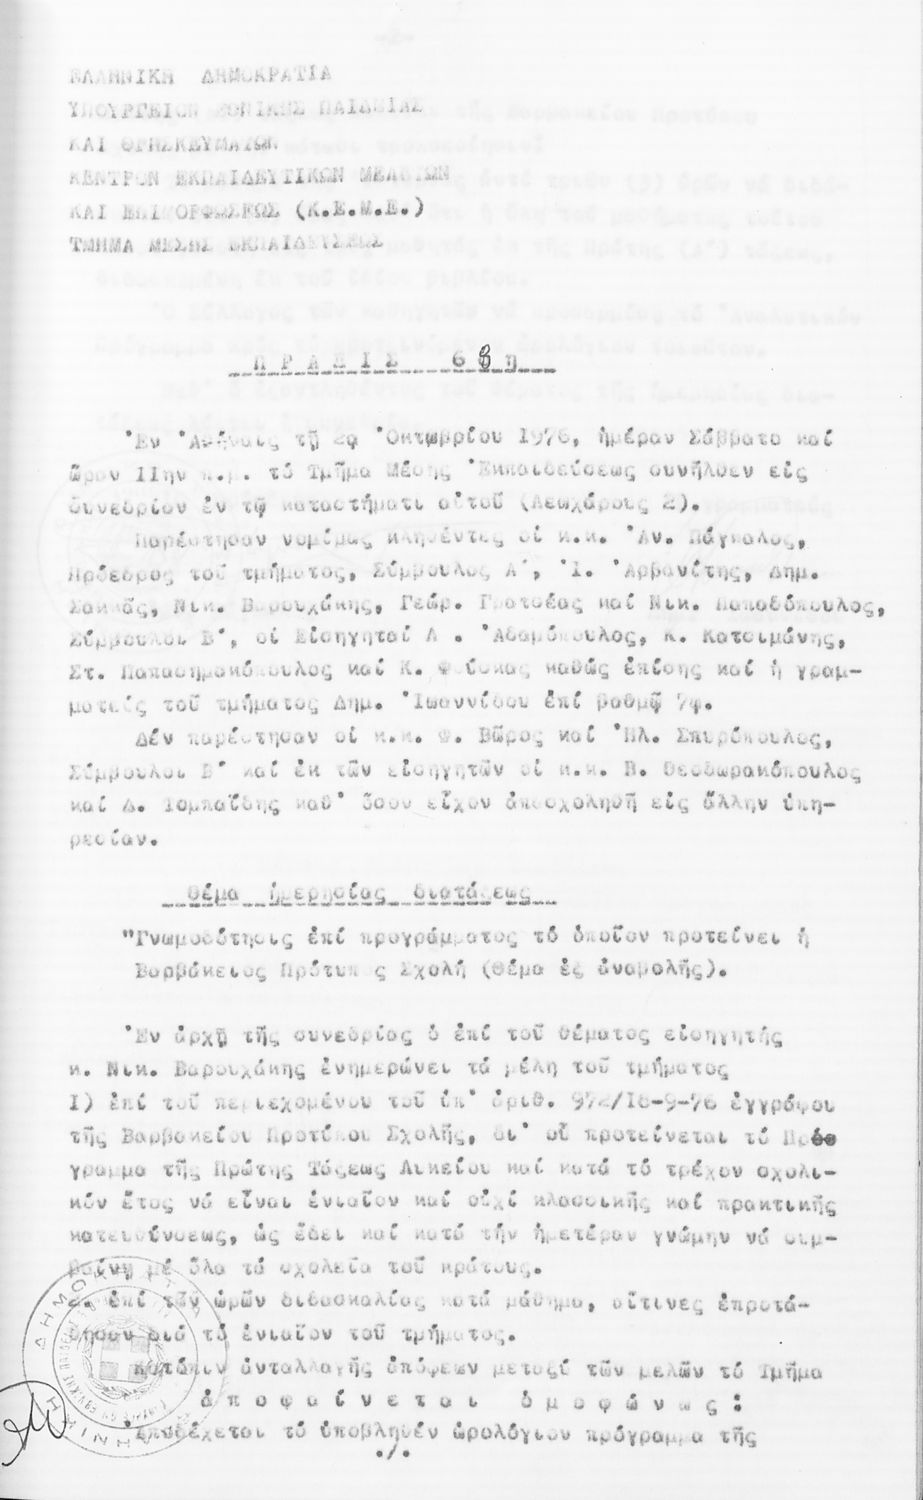 ΕΛΛΗΝΙΚΗ ΔΗΜΟΚΡΑΤΙΑ
ΥΠΟΥΡΓΕΙΟΝ ΕΘΝΙΚΗΣ ΠΑΙΔΕΙΑΣ
ΚΑΙ ΘΡΗΣΚΕΥΜΑΤΩΝ
ΚΕΝΤΡΟΝ ΕΚΠΑΙΔΕΥΤΙΚΩΝ ΜΕΛΕΤΩΝ
ΚΑΙ ΕΠΙΜΟΡΦΩΣΕΩΣ (Κ.Ε.Μ.Ε.)
ΤΜΗΜΑ ΜΕΣΗΣ ΕΚΠΑΙΔΕΥΣΕΩΣ
ΠΡΑΞΙΣ 6 η
Ἐν Ἀθήναις τῇ Ὀκτωβρίου 1976, ἡμέραν Σάββατο καί
ὥραν 11ην π.μ. τό Τμῆμα Μέσης Ἐκπαιδεύσεως συνῆλθεν εἰς
συνεδρίαν ἐν τῷ καταστήματι αὐτοῦ (Λεωχάρους 2).
Παρέστησαν νομίμως κληθέντες οἱ κ.κ. Ἀν. Πάγκαλος,
Πρόεδρος τοῦ τμήματος, Σύμβουλος Α΄, Ἰ. Ἀρβανίτης, Δημ.
Σακκᾶς, Νικ. Βαρουχάκης, Γεώρ. Γρατσέας καί Νικ. Παπαδόπουλος,
Σύμβουλοι Β΄, οἱ Εἰσηγηταί Ἀδαμόπουλος, Κ. Κατσιμάνης,
Στ. Παπασημακόπουλος καί Κ. καθώς ἐπίσης καί ἡ γραμ-
ματεύς τοῦ τμήματος Δημ. Ἰωαννίδου ἐπί βαθμῷ 7ῳ.
Δέν παρέστησαν οἱ κ.κ. Φ. Βῶρος καί Ἠλ. Σπυρόπουλος,
Σύμβουλοι Β΄ καί ἐκ τῶν εἰσηγητῶν οἱ κ.κ. Β. Θεοδωρακόπουλος
καί Δ. Τομπαΐδης καθ' ὅσον εἶχον ἀπασχοληθῆ εἰς ἄλλην ὑπη-
ρεσίαν.
Θέμα ἡμερησίας διατάξεως
"Γνωμοδότησις ἐπί προγράμματος τό ὁποῖον προτείνει ἡ
Βαρβάκειος Πρότυπος Σχολή (Θέμα ἐξ ἀναβολῆς).
Ἐν ἀρχῇ τῆς συνεδρίας ὁ ἐπί τοῦ θέματος εἰσηγητής
κ. Νικ. Βαρουχάκης ἐνημερώνει τά μέλη τοῦ τμήματος
1) ἐπί τοῦ περιεχομένου τοῦ ὑπ' ἀριθ. 972/10-9-76 ἐγγράφου
τῆς Βαρβακείου Προτύπου Σχολῆς, δι' οὗ προτείνεται τό Πρό
γραμμα τῆς Πρώτης Τάξεως Λυκείου καί κατά τό τρέχον σχολι-
κόν ἔτος νά εἶναι ἑνιαῖον καί οὐχί κλασσικῆς καί πρακτικῆς
κατευθύνσεως, ὡς ἔδει καί κατά τήν ἡμετέραν γνώμην νά συμ-
βαίνῃ μέ ὅλα τά σχολεῖα τοῦ κράτους.
2. ἐπί τῶν ὡρῶν διδασκαλίας κατά μάθημα, αἵτινες ἐπροτά-
θησαν διά τό ἑνιαῖον τοῦ τμήματος.
Κατόπιν ἀνταλλαγῆς ἀπόψεων μεταξύ τῶν μελῶν τό Τμῆμα
ἀποφαίνεται ὁμοφώνως:
Ἀποδέχεται τό ὑποβληθέν ὡρολόγιον πρόγραμμα τῆς
./.